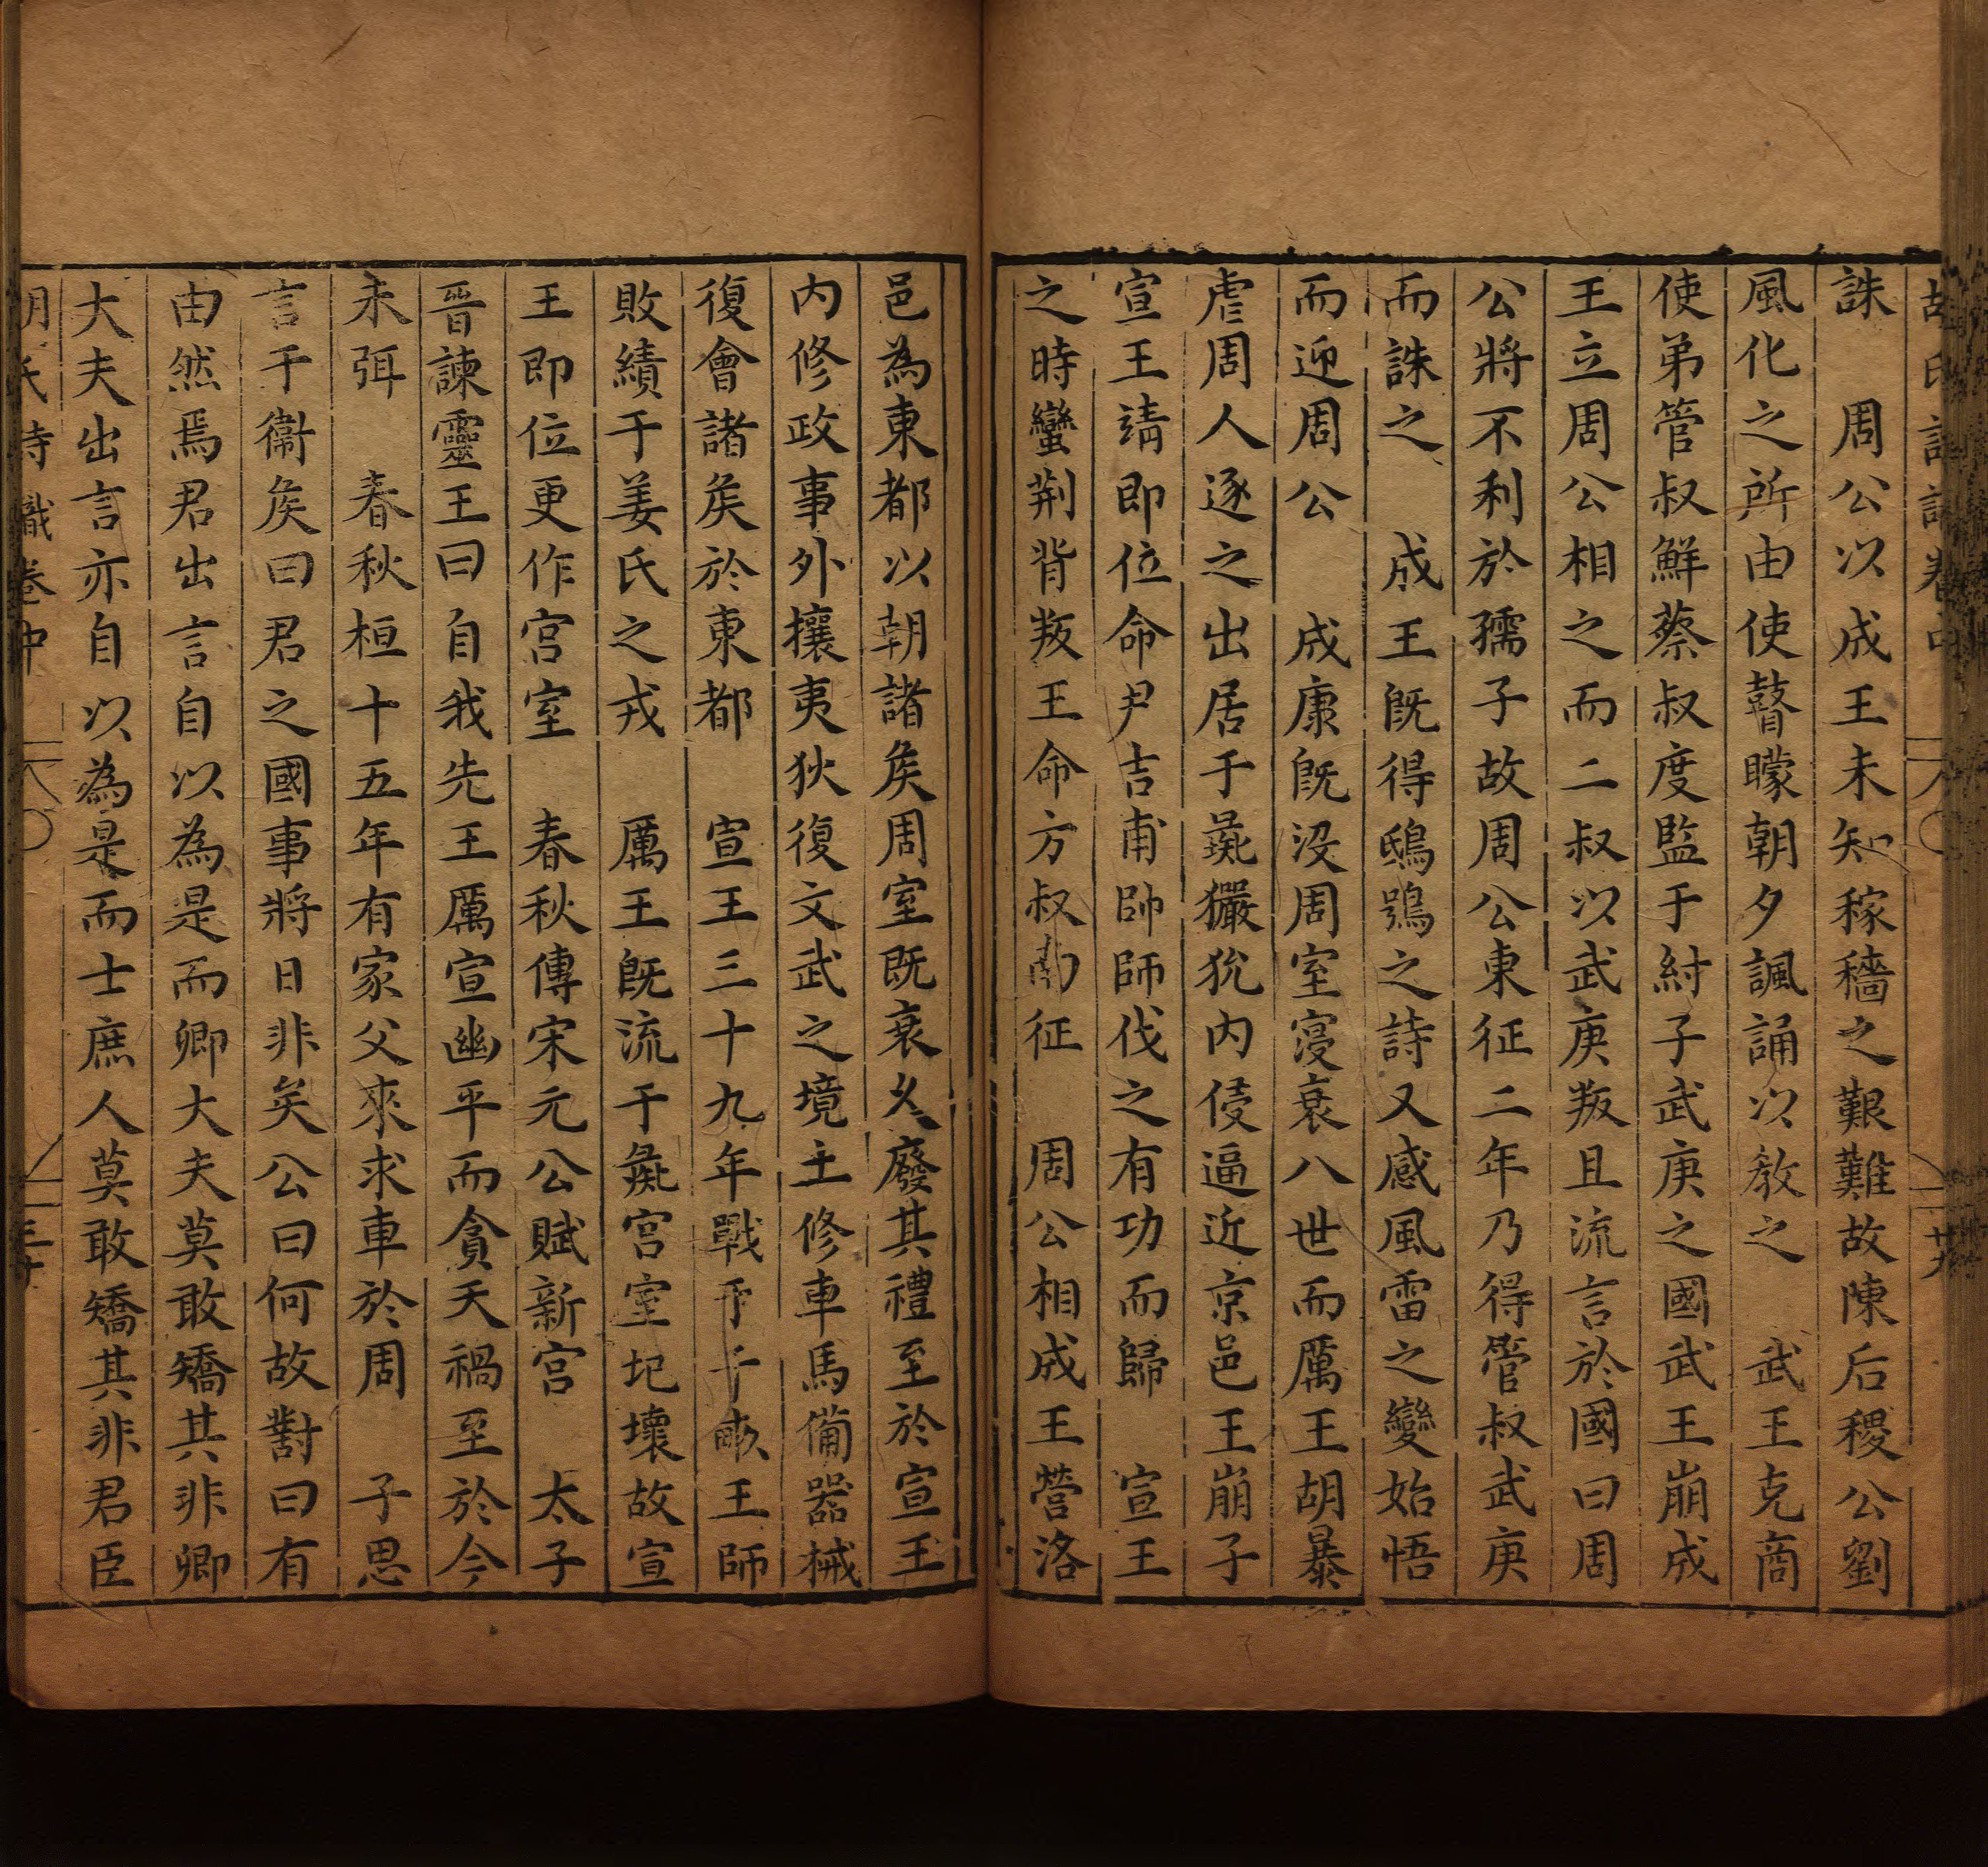 誅　周公以成王未知稼穡之艱難故陳后稷公劉
風化之所由使瞽矇朝夕諷誦以教之　武王克商
使弟管叔鮮蔡叔度監于紂子武庚之國武王崩成
王立周公相之而二叔以武庚叛且流言於國曰周
公將不利於孺子故周公東征二年乃得管叔武庚
而誅之　成王既得鴟鴞之詩又感風雷之變始悟
而迎周公　成康既沒周室寖衰八世而厲王胡暴
虐周人逐之出居于彘玁狁內侵逼近京邑王崩子
宣王靖即位命尹吉甫帥師伐之有功而歸　宣王
之時蠻荆背叛王命方叔南征　周公相成王營洛
邑為東都以朝諸矦周室既衰乆廢其禮至於宣王
内修政事外攘夷狄復文武之境土修車馬備器械
復會諸矦於東都　宣王三十九年戰于千畝王師
敗績于姜氏之戎　厲王既流于彘宮室圮壞故宣
王即位更作宮室　春秋傳宋元公賦新宮　太子
晉諫靈王曰自我先王厲宣幽平而貪天禍至於今
未弭　春秋桓十五年有家父來求車於周　子思
言于衞矦曰君之國事將日非矣公曰何故對曰有
由然焉君出言自以為是而卿大夫莫敢矯其非卿
大夫出言亦自以為是而士庶人莫敢矯其非君臣
氏詩識卷中